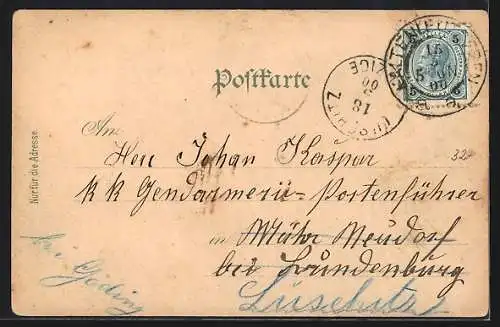 KALTENLEUTGEBEN
15
5
00
5 5
Postkarte
LUSCHITZ
18
5
00
An:
Herr Johan Kaspar
32
k k Gendarmerie-Postenführer
in Mähr Neudorf
bei Lundenburg
bei Göding
Luschitz
Nur für die Adresse